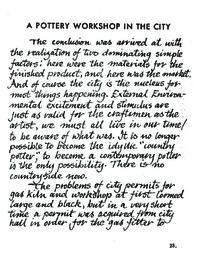 A POTTERY WORKSHOP IN THE CITY
The conclusion was arrived at with
the realization of two dominating simple
factors: here were the materials for the
finished product, and here was the market.
And of course the city is the nucleus for
most things happening. External Environ-
mental excitement and stimulus are
just as valid for the craftsmen as the
artist, we must all live in our time
to be aware of what was. It is no longer
possible to become the idyllic "country
potter"; to become a contemporary potter
is the only possibility. There is no
countryside now.
The problems of city permits for
gas kiln and workshop at first loomed
large and black, but in a very short
time a permit was acquired from city
hall in order for the gas fitter to
23.